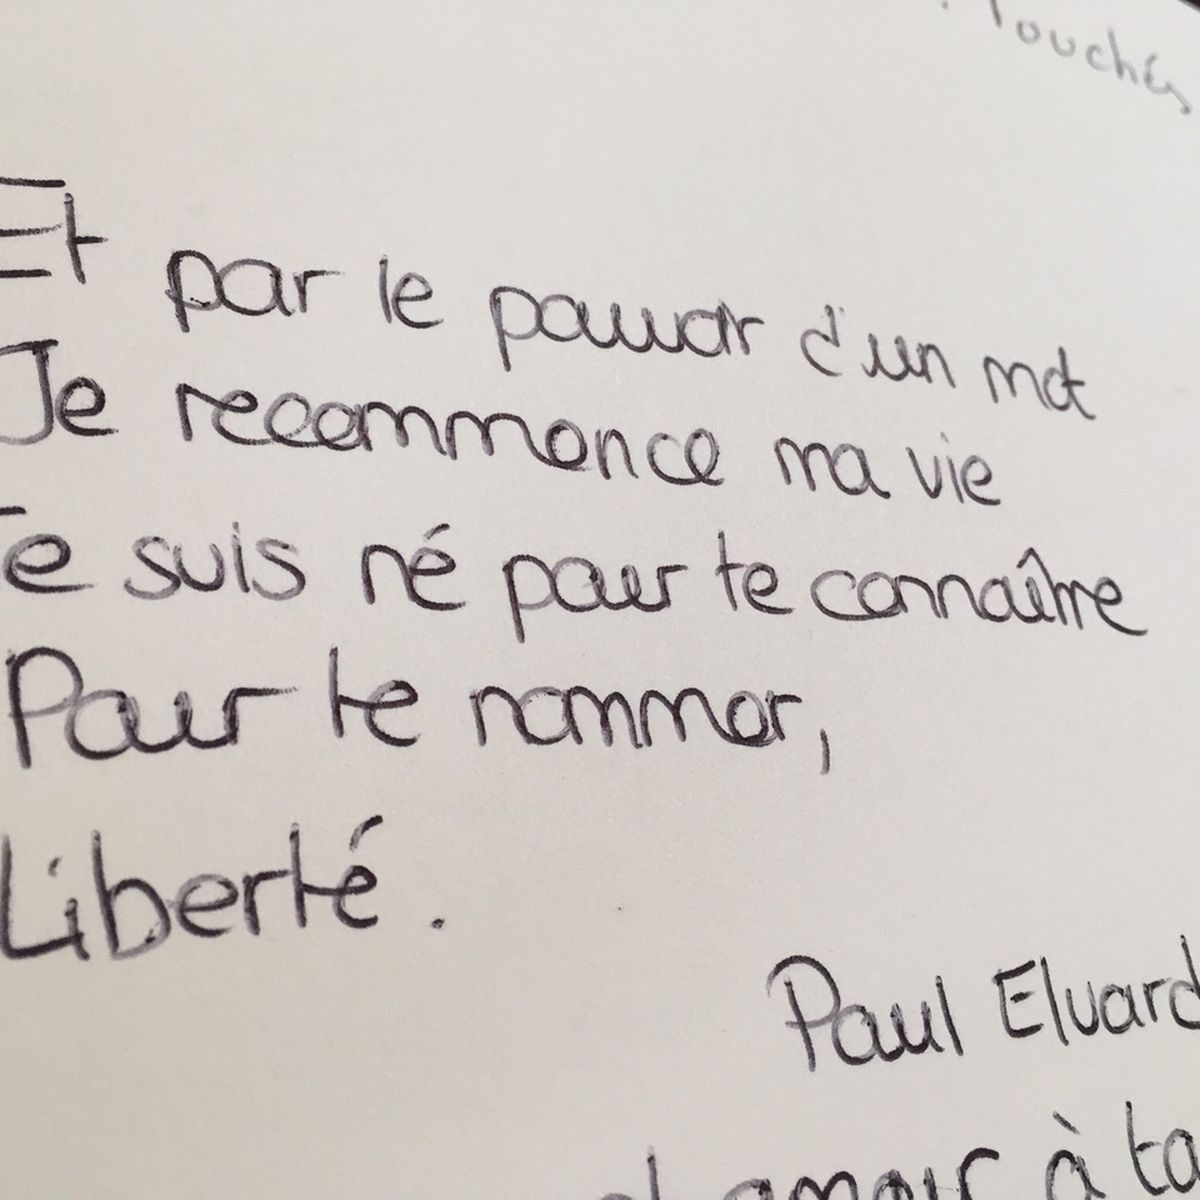 Touchés
Et par le pouvoir d'un mot
Je recommence ma vie
Je suis né pour te connaître
Pour te nommer,
Liberté.
Paul Eluard
à ta